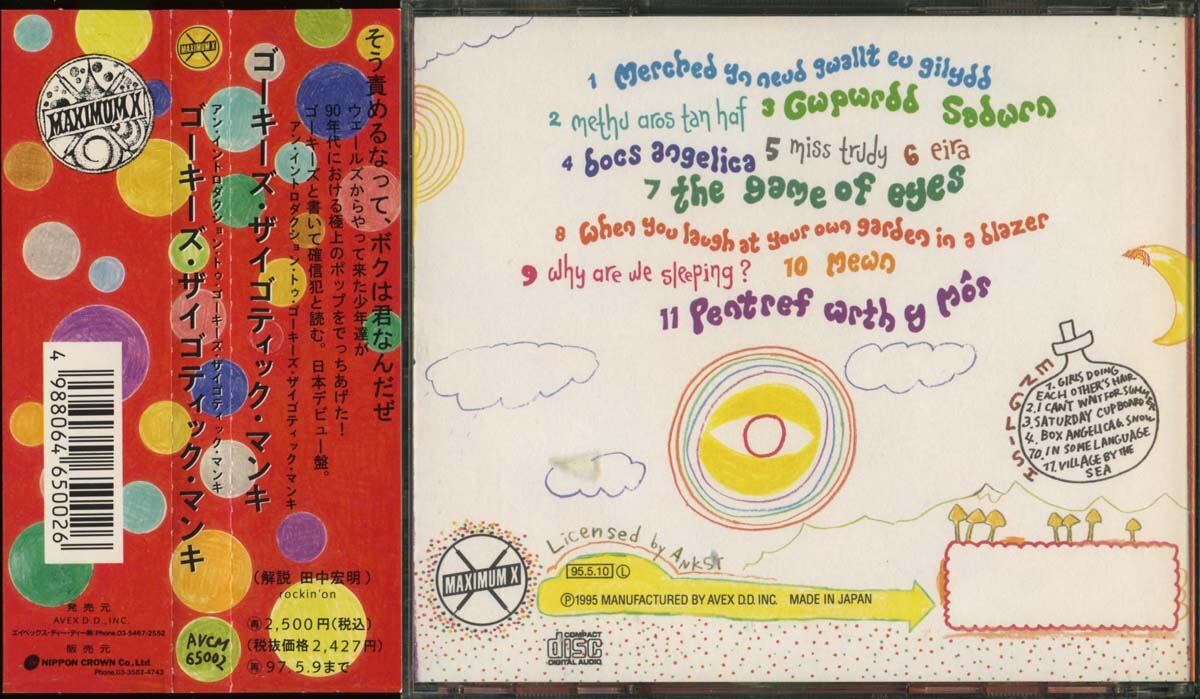 MAXIMUM X
MAXIMUM X
ゴーキーズ・ザイゴティック・マンキ
アン・イントロダクション・トゥ・ゴーキーズ・ザイゴティック・マンキ
ゴーキーズ・ザイゴティック・マンキ
そう責めるなって、ボクは君なんだぜ
ウェールズからやって来た少年達が
90年代における極上のポップをでっちあげた!
ゴーキーズと書いて確信犯と読む。日本デビュー盤。
アン・イントロダクション・トゥ・ゴーキーズ・ザイゴティック・マンキ
4 988064 650026
(解説 田中宏明)
rockin'on
再2,500円(税込)
(税抜価格2,427円)
再97.5.9まで
AVCM
65002
発売元
AVEX D.D., INC.
エイベックス・ディー・ディー㈱ Phone.03-5467-2552
販売元
NIPPON CROWN Co., Ltd.
Phone.03-3582-4743
1 Merched yn neud gwallt eu gilydd
2 methu aros tan haf 3 Gwpwrdd Sadwrn
4 bocs angelica 5 miss trudy 6 eira
7 the game of eyes
8 When you laugh at your own garden in a blazer
9 why are we sleeping? 10 Mewn
11 Pentref wrth y Môr
ENGLISH
1. GIRLS DOING
EACH OTHER'S HAIR
2. I CAN'T WAIT FOR SUMMER
3. SATURDAY CUPBOARD
4. BOX ANGELICA 6. SNOW
10. IN SOME LANGUAGE
11. VILLAGE BY THE
SEA
Licensed by ANKST
MAXIMUM X
95.5.10 Ⓛ
Ⓟ1995 MANUFACTURED BY AVEX D.D. INC. MADE IN JAPAN
COMPACT
disc
DIGITAL AUDIO